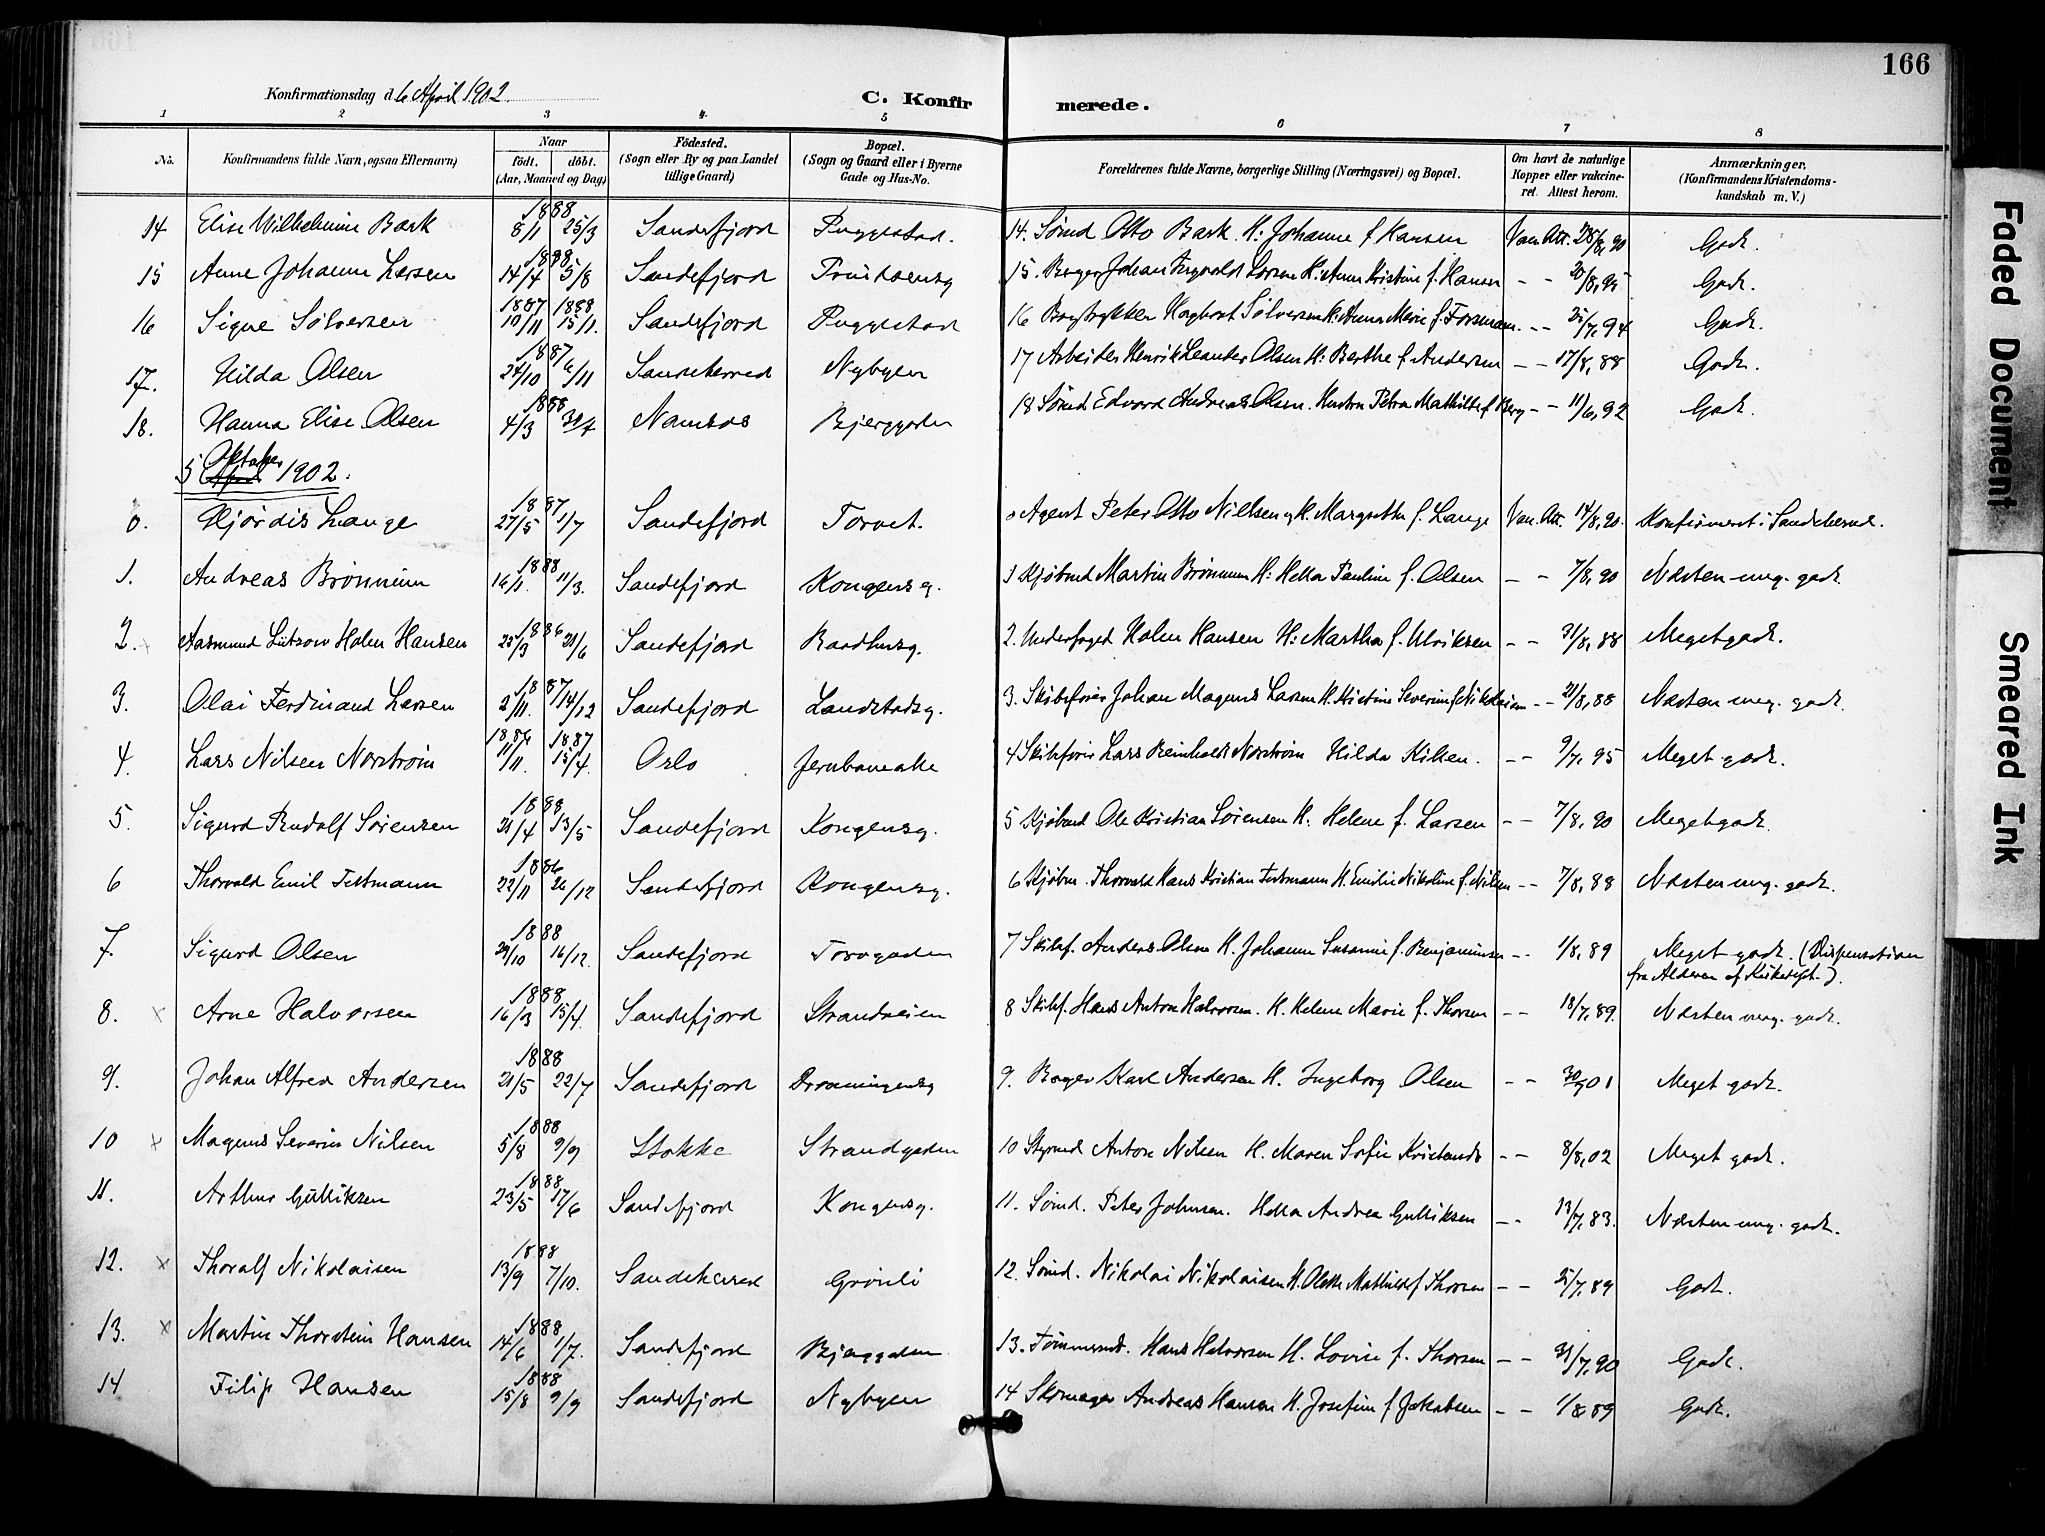 166
Konfirmationsdag d. 6 April 1902.
C. Konfirmerede.
1 2 3 4 5 6 7 8
No. Konfirmandens fulde Navn, ogsaa Efternavn) Naar født. døbt. (Aar, Maaned og Dag) Födested. (Sogn eller By og paa Landet tillige Gaard) Bopæl. (Sogn og Gaard eller i Byerne Gade og Hus-No. Forældrenes fulde Navne, borgerlige Stilling (Næringsvei) og Bopæl. Om havt de naturlige Kopper eller vakcineret. Attest herom. Anmærkninger. (Konfirmandens Kristendomskundskab m. V.)
14 Elise Wilhelmine Bark 1888 8/1 25/3 Sandefjord Puggestad. 14. Sømd Otto Bark. H: Johanne f Hansen Vac. Att. 28/8, 90 Godt.
15 Anne Johanne Larsen 1888 14/4 5/8 Sandefjord 15. Bager Johan Larsen H: Anna Kristine f. Hansen - - 20/8, 95 Godt.
16 Signe Sølversen 1887 10/11 1888 15/1 Sandefjord Puggestad 16 Bogtrykker Hagbart Sølversen H: Anna Marie f. Forsman - - 25/7, 94 Godt.
17. Hilda Olsen 1887 24/10 6/11 Sandeherred Nybyen 17 Arbeider Henrik Leander Olsen H: Berthe f. Andersen - - 17/8, 88 Godt.
18. Hanna Elise Olsen 1888 4/3 Namsos Bjerggaden 18 Sømd. Edvard Andreas Olsen. Hustru Petra Mathilde f Berg - - 11/6, 92 Godt.
5 Oktober 1902.
0. Hjørdis Lange 1887 27/5 1/7 Sandefjord Torvet. 0 Agent Peter Otto Nielsen og H. Margrethe f. Lange Vac. Att. 14/8, 90. Konfirmeret i Sandeherred.
1. Andreas Brønnum 1888 16/1. 11/3. Sandefjord Kongensg. 1 Kjøbmd Martin Brønnum H: Helka Pauline f. Olsen - - 7/8, 90 Næsten meg. godt.
2. Aasmund Lützow Holm Hansen 1886 21/6 Sandefjord Raadhusg. 2. Underfoged Holm Hansen H: Martha f. Ulriksen - - 31/8, 88 Meget godt.
3. Olai Ferdinand Larsen 1887 2/11. 14/12 Sandefjord Landstadsg. 3. Skibsfører Johan Magnus Larsen H. Kristine Severine f. Nikolaisen - - 21/8, 88 Næsten meg. godt.
4. Lars Nilsen Norstrøm 1886 11/11. 1887 15/4. Oslo Jernbanealle 4 Skibsfører Lars Reinholdt Norstrøm Hilda Kilsen. - - 9/7, 95 Meget godt.
5. Sigurd Rudolf Sørensen 1888 21/4 13/5 Sandefjord Kongensg. 5 Kjøbmd Ole Kristian Sørensen H. Helene f. Larsen - - 7/8, 90 Meget godt.
6 Thorvald Emil Testmann 1886 22/11 26/12 Sandefjord Kongensg. 6 Kjøbm. Thorvald Hans Kristian Testmann H. Emilie Nikoline f. Nilsen - - 7/8, 88 Næsten meg. godt.
7. Sigurd Olsen 1888 29/10 16/12. Sandefjord Torvgaden 7 Skibsf. Anders Olsen H. Johanne Susanne f. Benjaminsen - - 1/8, 89 Meget godt. (Dispensation fra Alderen af Kirkedept.).
8. × Arne Halvorsen 1888 16/3 15/4. Sandefjord Strandveien 8 Skibsf. Hans Anton Halvorsen. H. Helene Marie f. Thorsen - - 18/7, 89. Næsten meg. godt.
9. Johan Alfred Andersen 1888 21/5 22/7 Sandefjord Dronningensg 9. Bager Karl Andersen H. Ingeborg Olsen - - 01 Meget godt.
10 × Magnus Severin Nilsen 1888 5/8 9/9 Stokke Strandgaden 10 Styrmd Anton Nilsen H. Maren Sofie - - 8/8, 02 Meget godt.
11. Arthur Gulliksen 1888 23/5 17/6 Sandefjord Kongensg. 11. Sømd. Peter Johnsen. Helka Andrea Gulliksen - - 13/7, 83. Næsten meg. godt.
12. × Thoralf Nikolaisen 1888 13/9 7/10. Sandeherred Grønli 12. Sømd. Nikolai Nikolaisen H. Olette Mathilde f Thorsen - - 25/7, 89 Godt.
13. × Martin Thorstein Hansen 1888 14/6 1/7. Sandefjord Bjerggaden 13. Tømmermd. Hans Halvorsen H. Lovise f. Thorsen - - 31/7, 90 Godt.
14 Filip Hansen 1888 15/8 9/9 Sandefjord Nybyen 14 Skomager Andreas Hansen H. Josefine f Jakobsen - - 1/8 89 Godt.
Faded Document
Smeared Ink